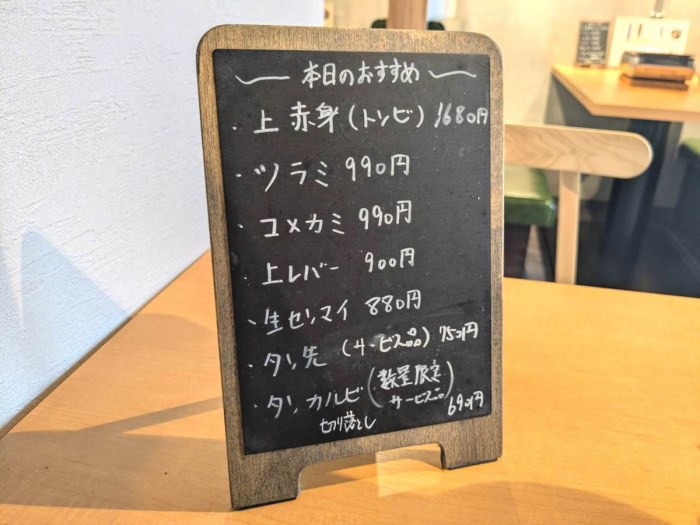 本日のおすすめ
・上 赤身(トンビ) 1680円
・ツラミ 990円
・コメカミ 990円
・上レバー 900円
・生センマイ 880円
・タン先 (サービス品) 750円
・タンカルビ (数量限定 サービス品) 690円
切り落とし